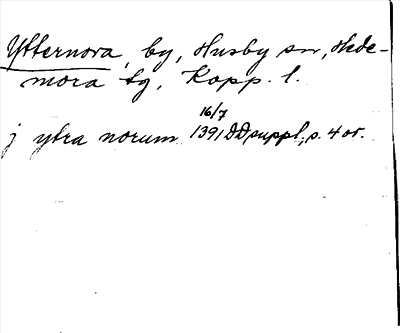 Ytternora, by, Husby sn, Hede-
mora tg, Kopp. l.
16/7
j ytra norum 1391 DD suppl, s. 4 or.